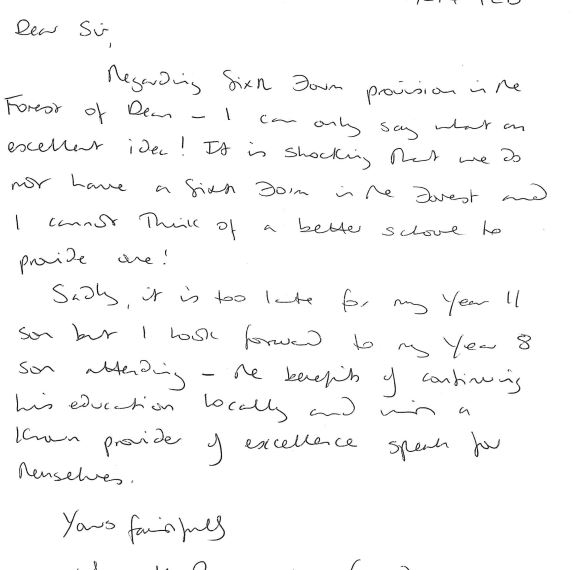 Dear Sir,
Regarding Sixth Form provision in the
Forest of Dean – I can only say what an
excellent idea! It is shocking that we do
not have a Sixth Form in the Forest and
I cannot think of a better school to
provide one!
Sadly, it is too late for my Year 11
son but I look forward to my Year 8
son attending – the benefits of continuing
his education locally and with a
known provider of excellence speak for
themselves.
Yours faithfully